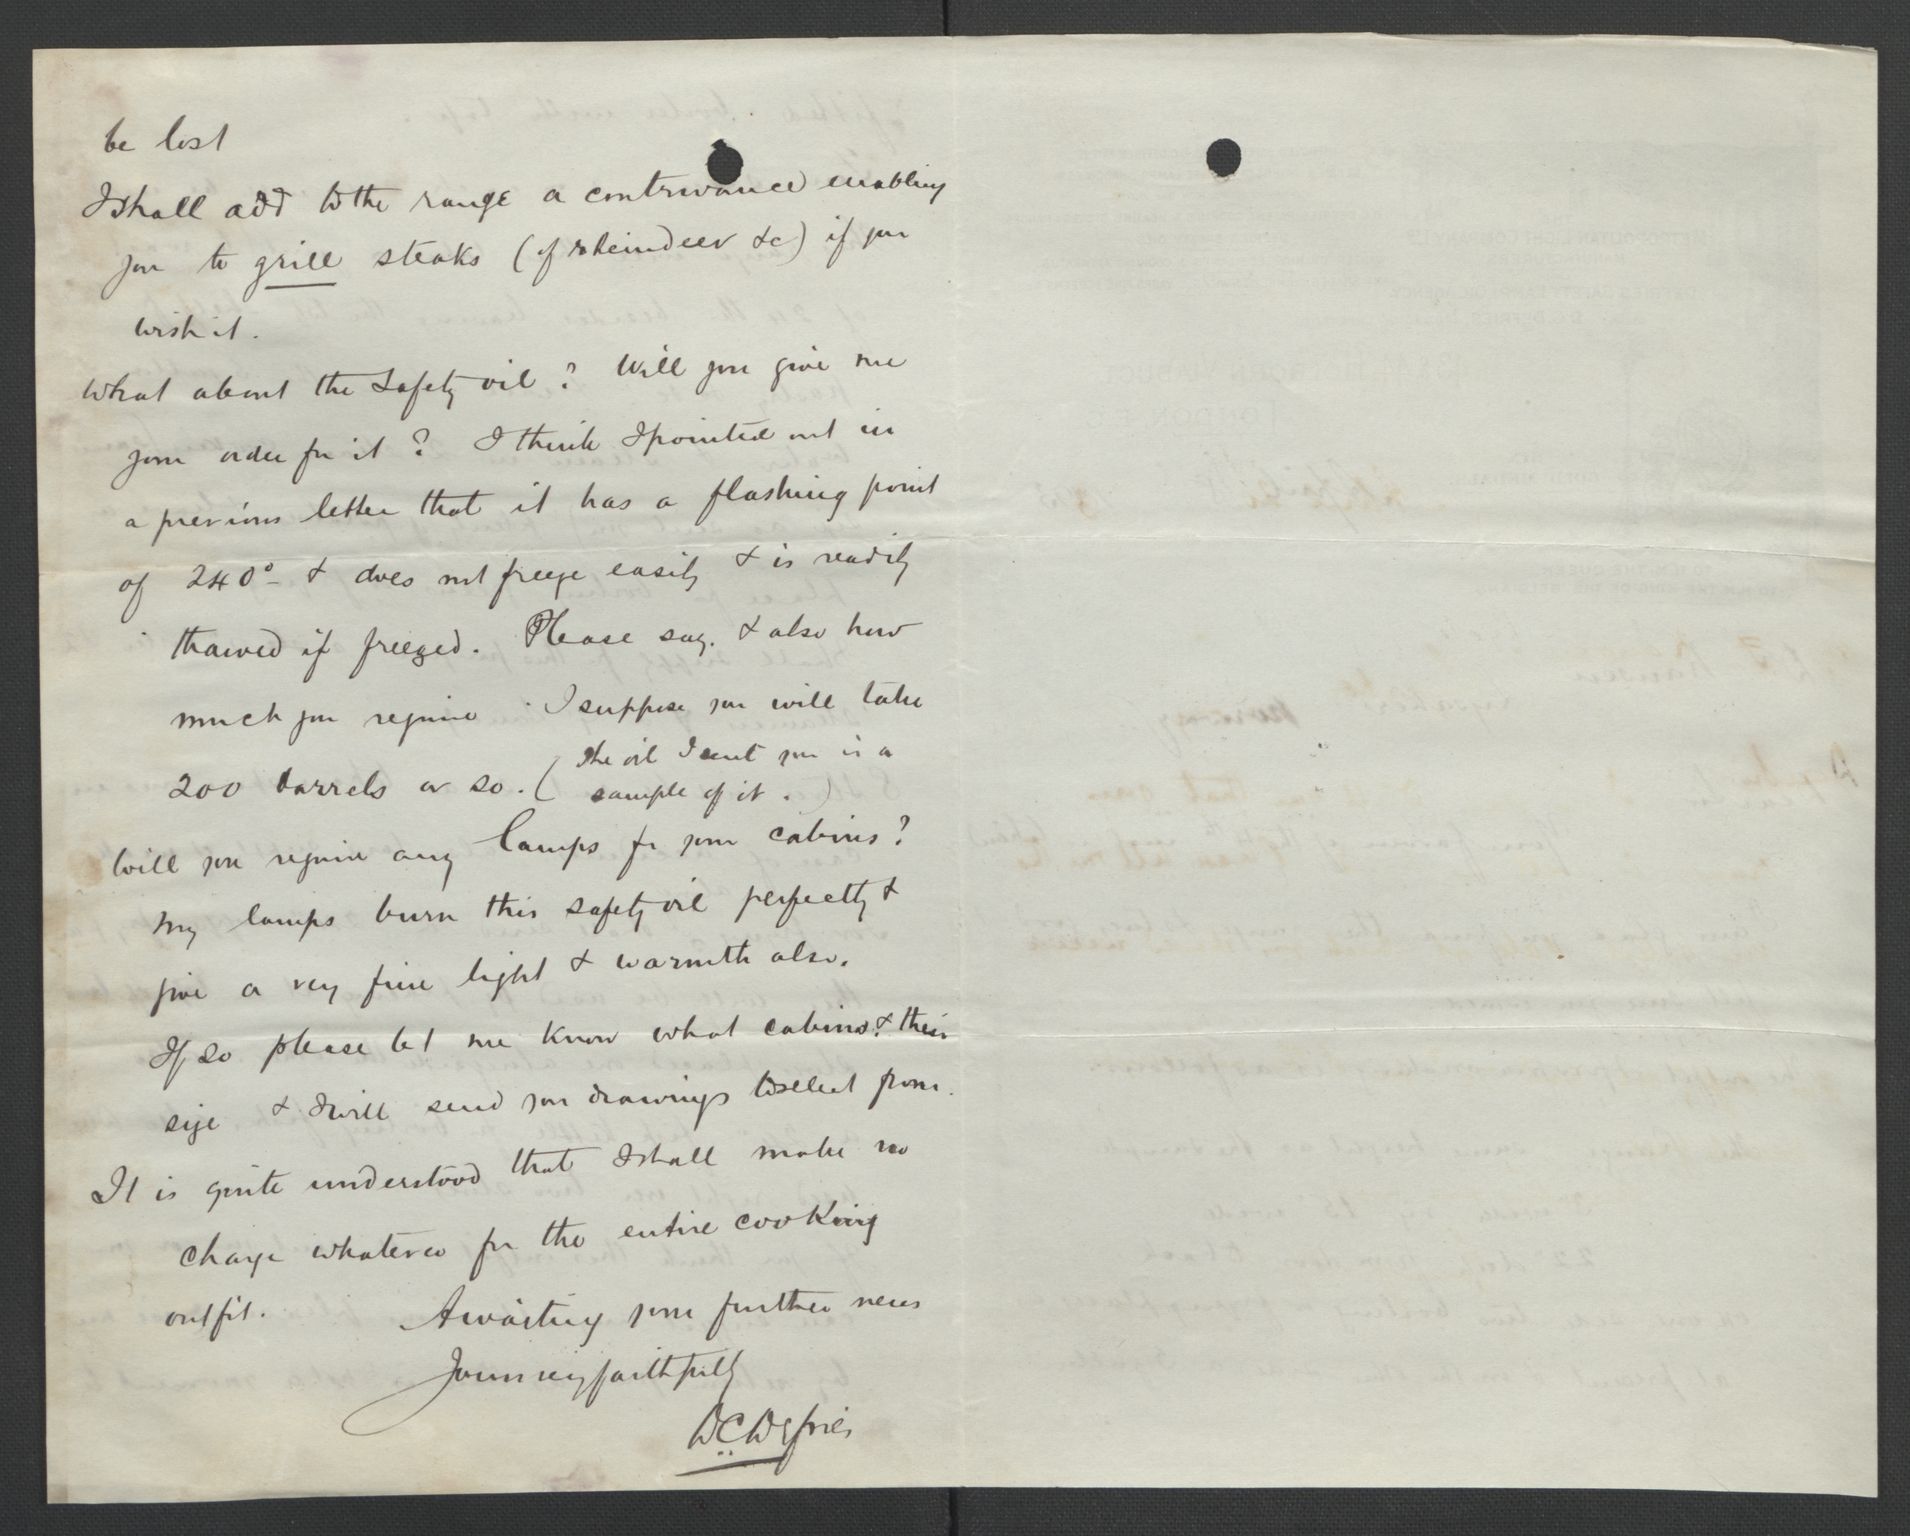 be lost
I shall add to the range a contrivance enabling
you to grill steaks (of rheindeer &c) if you
wish it.
What about the Safety oil? Will you give me
your order for it? I think I pointed out in
a previous letter that it has a flashing point
of 240° - & does not freeze easily & is readily
thawed if freezed. Please say. & also how
much you require. I suppose you will take
200 barrels or so. (The oil I sent you is a
sample of it.)
Will you require any lamps for your cabins?
My lamps burn this safety oil perfectly &
give a very fine light & warmth also.
If so please let me know what cabins & their
size & I will send you drawings to select from.
It is quite understood that I shall make no
charge whatever for the entire cooking
outfit. Awaiting your further news
Yours very faithfully
D C Defries